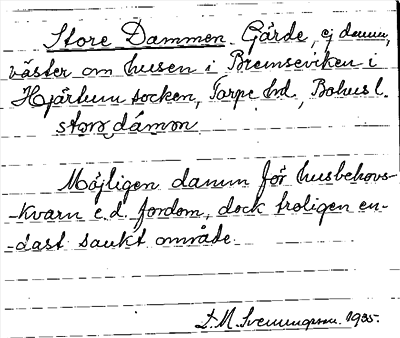 Store Dammen Gärde, ej damm,
väster om husen i Bremseviken i
Hjärtum socken, Torpe hd, Bohusl.
stơrə dámən
Möjligen damm för husbehovs-
-kvarn e.d. fordom, dock troligen en-
-dast sankt område.
L. M. Svenungsson. 1935.